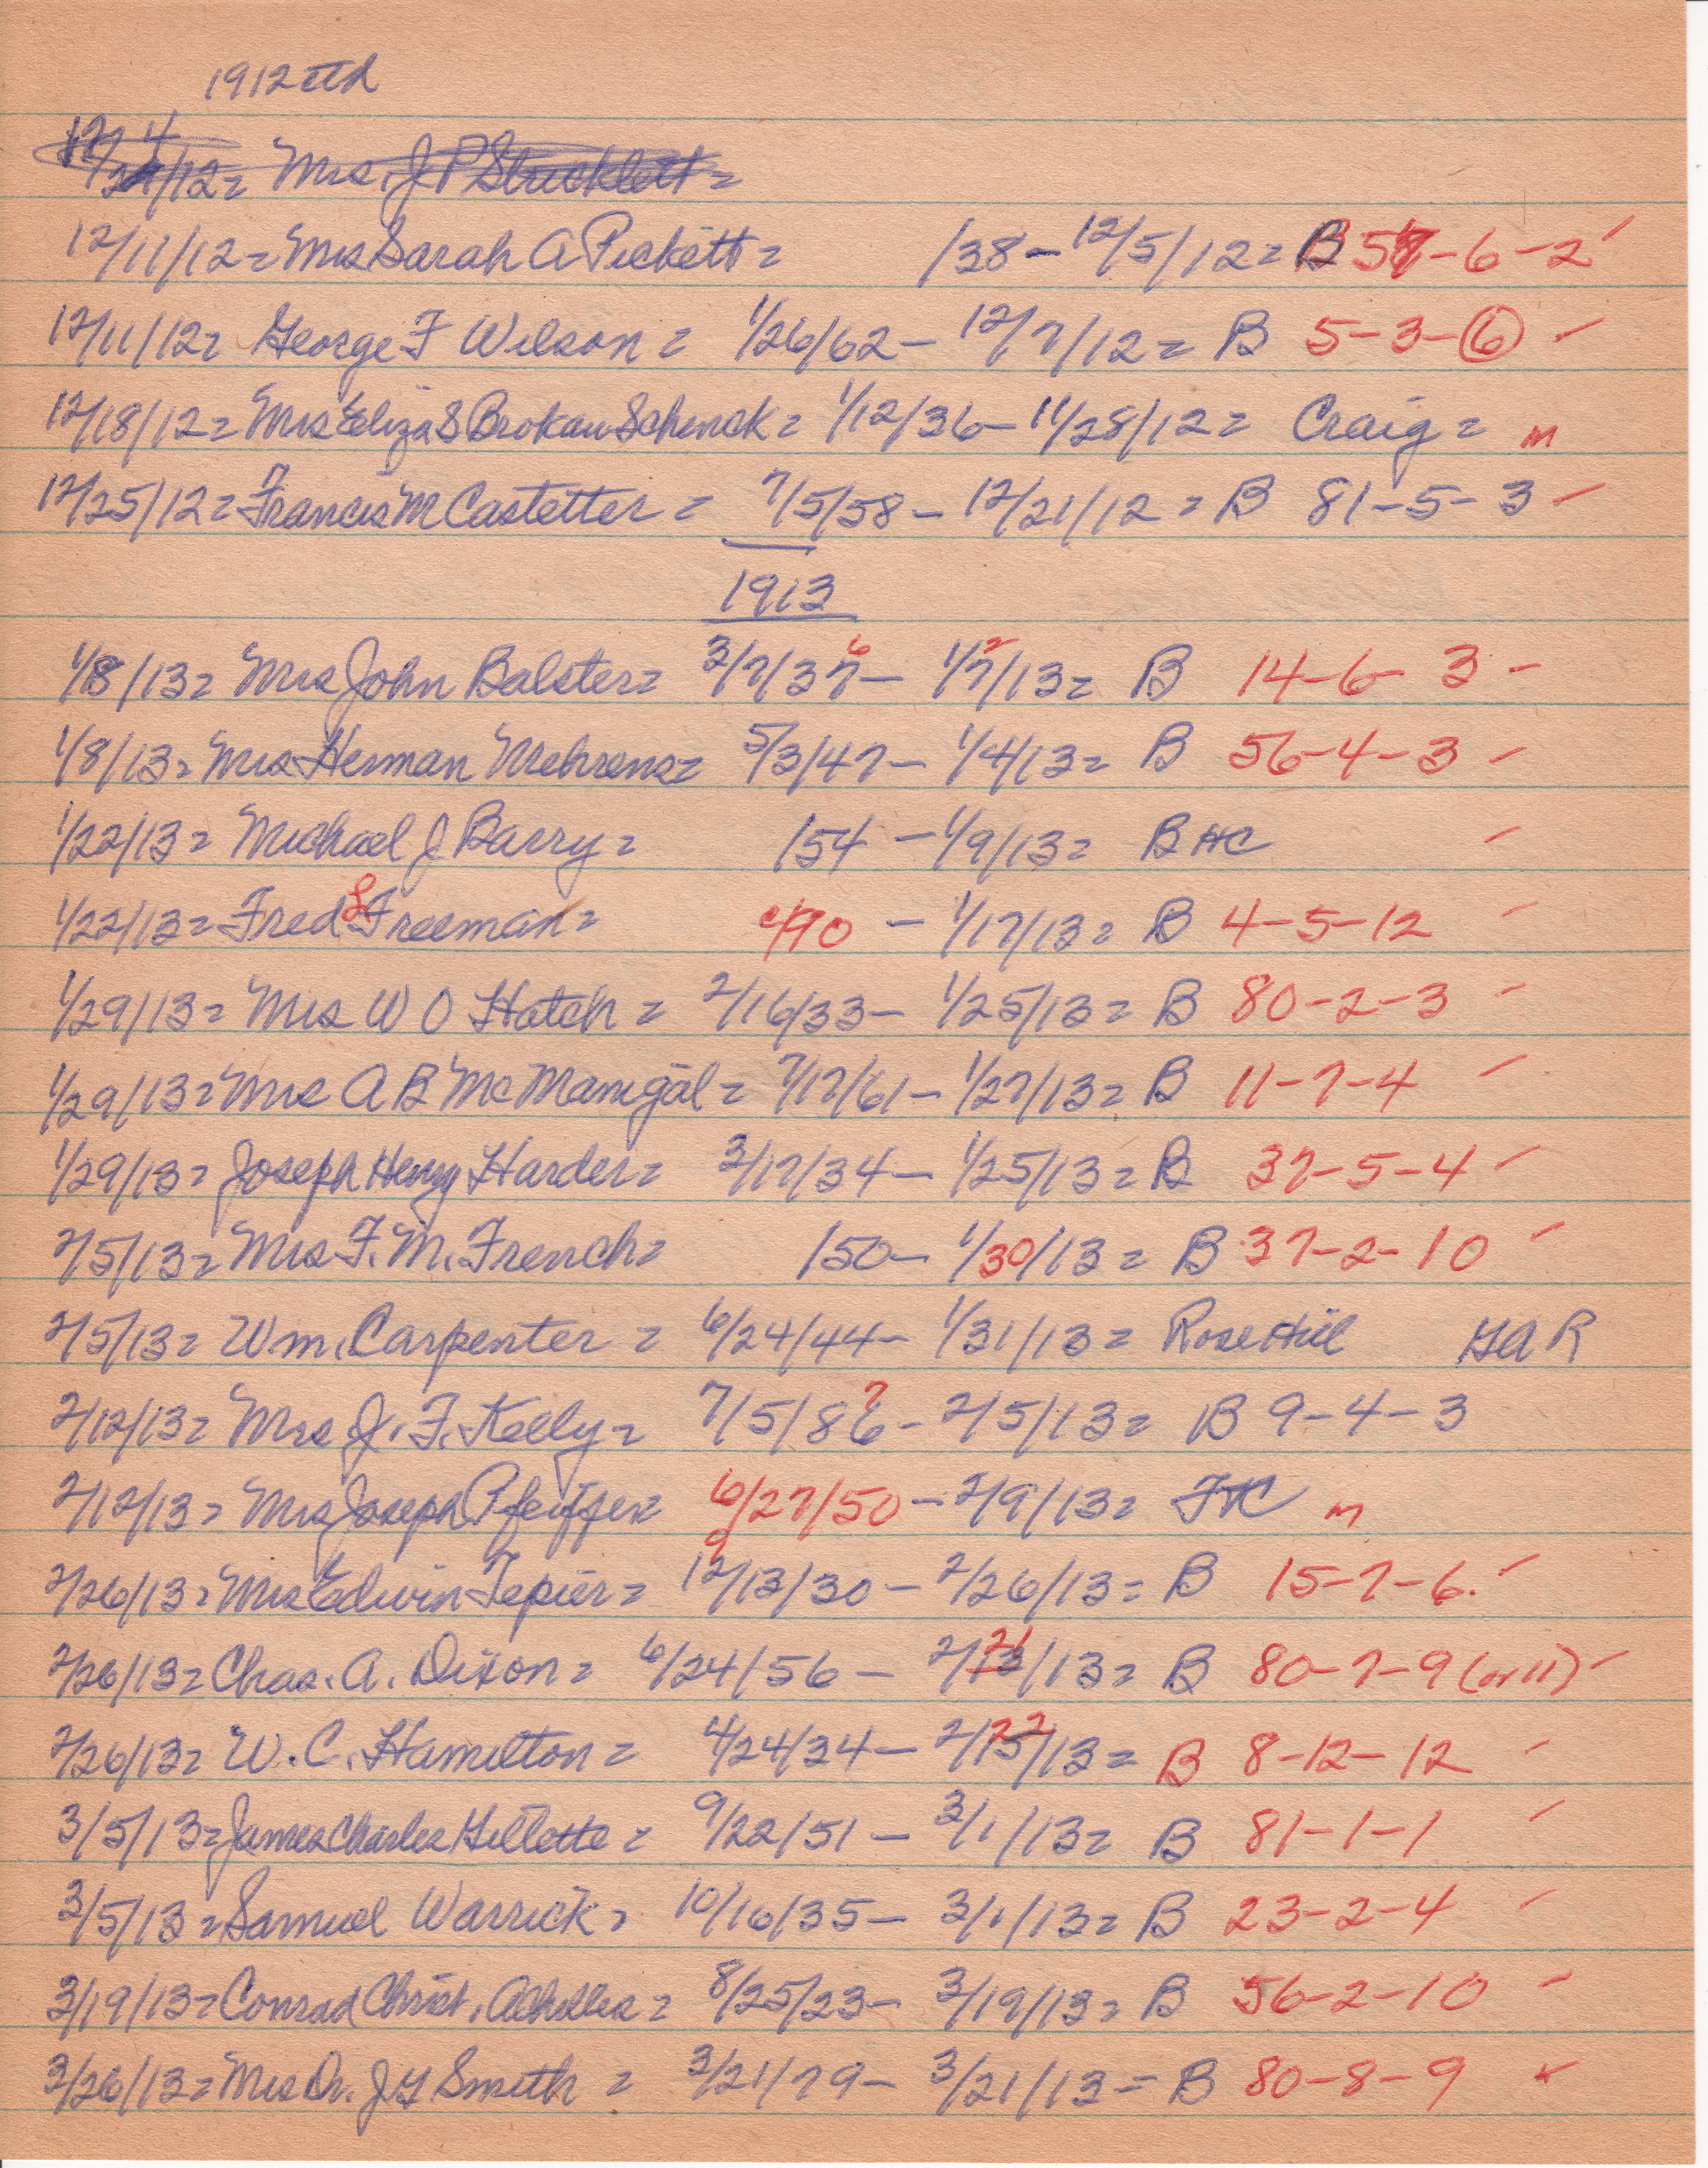 1912 ctd
12/4/12 = Mrs. J P Stricklett =
12/11/12 = Mrs Sarah A Pickett = /38 - 12/5/12 = B 57-6-2
12/11/12 = George F Wilson = 1/26/62 - 12/7/12 = B 5-3-6
12/18/12 = Mrs Eliza S Brokaw Schenck = 1/12/36 - 11/28/12 = Craig = m
12/25/12 = Francis M Castetter = 7/5/58 - 12/21/12 = B 81-5-3
1913
1/8/13 = Mrs John Balster = 3/7/37 6 - 1/7 2/13 = B 14-6-3
1/8/13 = Mrs Herman Mehrens = 5/3/47 - 1/4/13 = B 56-4-3
1/22/13 = Michael J Barry = /54 - 1/9/13 = B HC
1/22/13 = Fred S Freeman = c/90 - 1/17/13 = B 4-5-12
1/29/13 = Mrs W O Hatch = 2/16/33 - 1/25/13 = B 80-2-3
1/29/13 = Mrs A B McManigal = 7/17/61 - 1/27/13 = B 11-7-4
1/29/13 = Joseph Henry Harder = 3/17/34 - 1/25/13 = B 37-5-4
2/5/13 = Mrs F. M. French = /50 - 1/30/13 = B 37-2-10
2/5/13 = Wm. Carpenter = 6/24/44 - 1/31/13 = Rose Hill GAR
2/12/13 = Mrs J. F. Kelly = 7/5/86 ? - 2/5/13 = B 9-4-3
2/12/13 = Mrs Joseph Pfeiffer = 6/27/50 - 2/9/13 = FTC m
2/26/13 = Mrs Edwin Tepier = 12 9/13/30 - 2/26/13 = B 15-7-6.
2/26/13 = Chas. A. Dixon = 6/24/56 - 2/13 21/13 = B 80-7-9 (or 11)
2/26/13 = W. C. Hamilton = 4/24/34 - 2/15 22/13 = B 8-12-12
3/5/13 = James Charles Gillette = 9/22/51 - 3/1/13 = B 81-1-1
3/5/13 = Samuel Warrick = 10/16/35 - 3/1/13 = B 23-2-4
3/19/13 = Conrad Christ. Achilles = 8/25/23 - 3/19/13 = B 56-2-10
3/26/13 = Mrs Dr. J G Smith = 3/21/79 - 3/21/13 = B 80-8-9